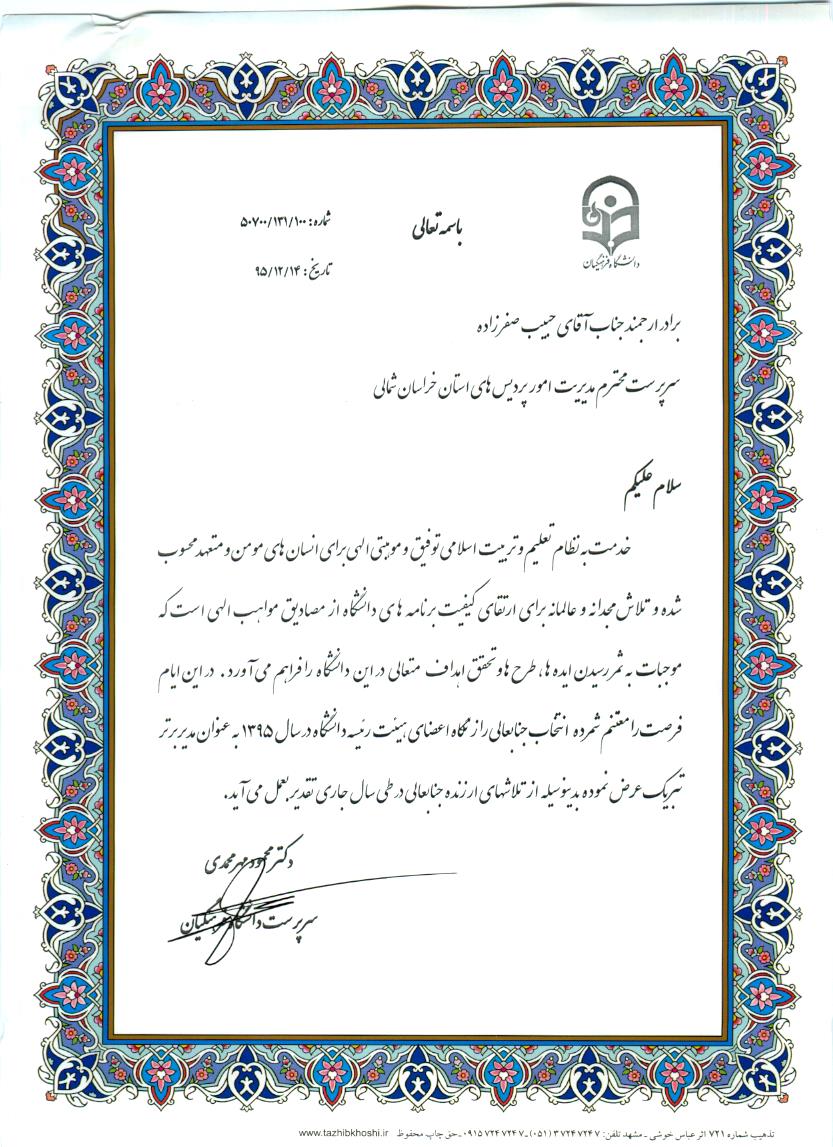 دانشگاه فرهنگیان
باسمه تعالی
شماره: ۵۰۷۰۰/۱۳۱/۱۰۰
تاریخ: ۹۵/۱۲/۱۴
برادر ارجمند جناب آقای حبیب صفرزاده
سرپرست محترم مدیریت امور پردیس های استان خراسان شمالی
سلام علیکم
خدمت به نظام تعلیم و تربیت اسلامی توفیق و موهبتی الهی برای انسان های مومن و متعهد محسوب
شده و تلاش مجدانه و عالمانه برای ارتقای کیفیت برنامه های دانشگاه از مصادیق مواهب الهی است که
موجبات به ثمر رسیدن ایده ها، طرح ها و تحقق اهداف متعالی در این دانشگاه را فراهم می آورد. در این ایام
فرصت را مغتنم شمرده انتخاب جنابعالی را از نگاه اعضای هیئت رئیسه دانشگاه در سال ۱۳۹۵ به عنوان مدیر برتر
تبریک عرض نموده بدینوسیله از تلاشهای ارزنده جنابعالی در طی سال جاری تقدیر بعمل می آید.
دکتر محمود مهرمحمدی
سرپرست دانشگاه فرهنگیان
تذهیب شماره ۷۲۱ اثر عباس خوشی ـ مشهد تلفن: ۳۷۲۴۷۲۴۷ (۰۵۱) ـ ۰۹۱۵۷۲۴۷۲۴۷ ـ حق چاپ محفوظ www.tazhibkhoshi.ir